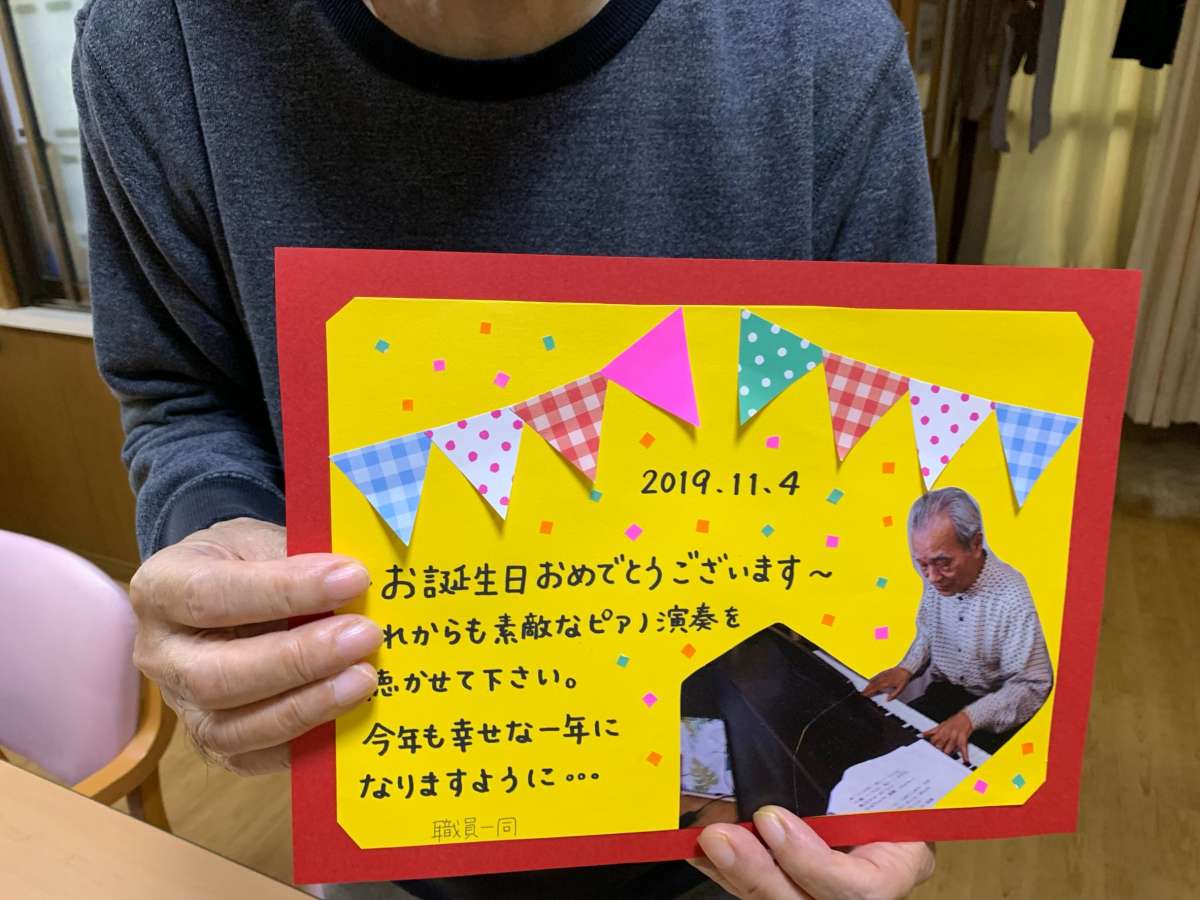 2019.11.4
お誕生日おめでとうございます〜
れからも素敵なピアノ演奏を
聴かせて下さい。
今年も幸せな一年に
なりますように...
職員一同